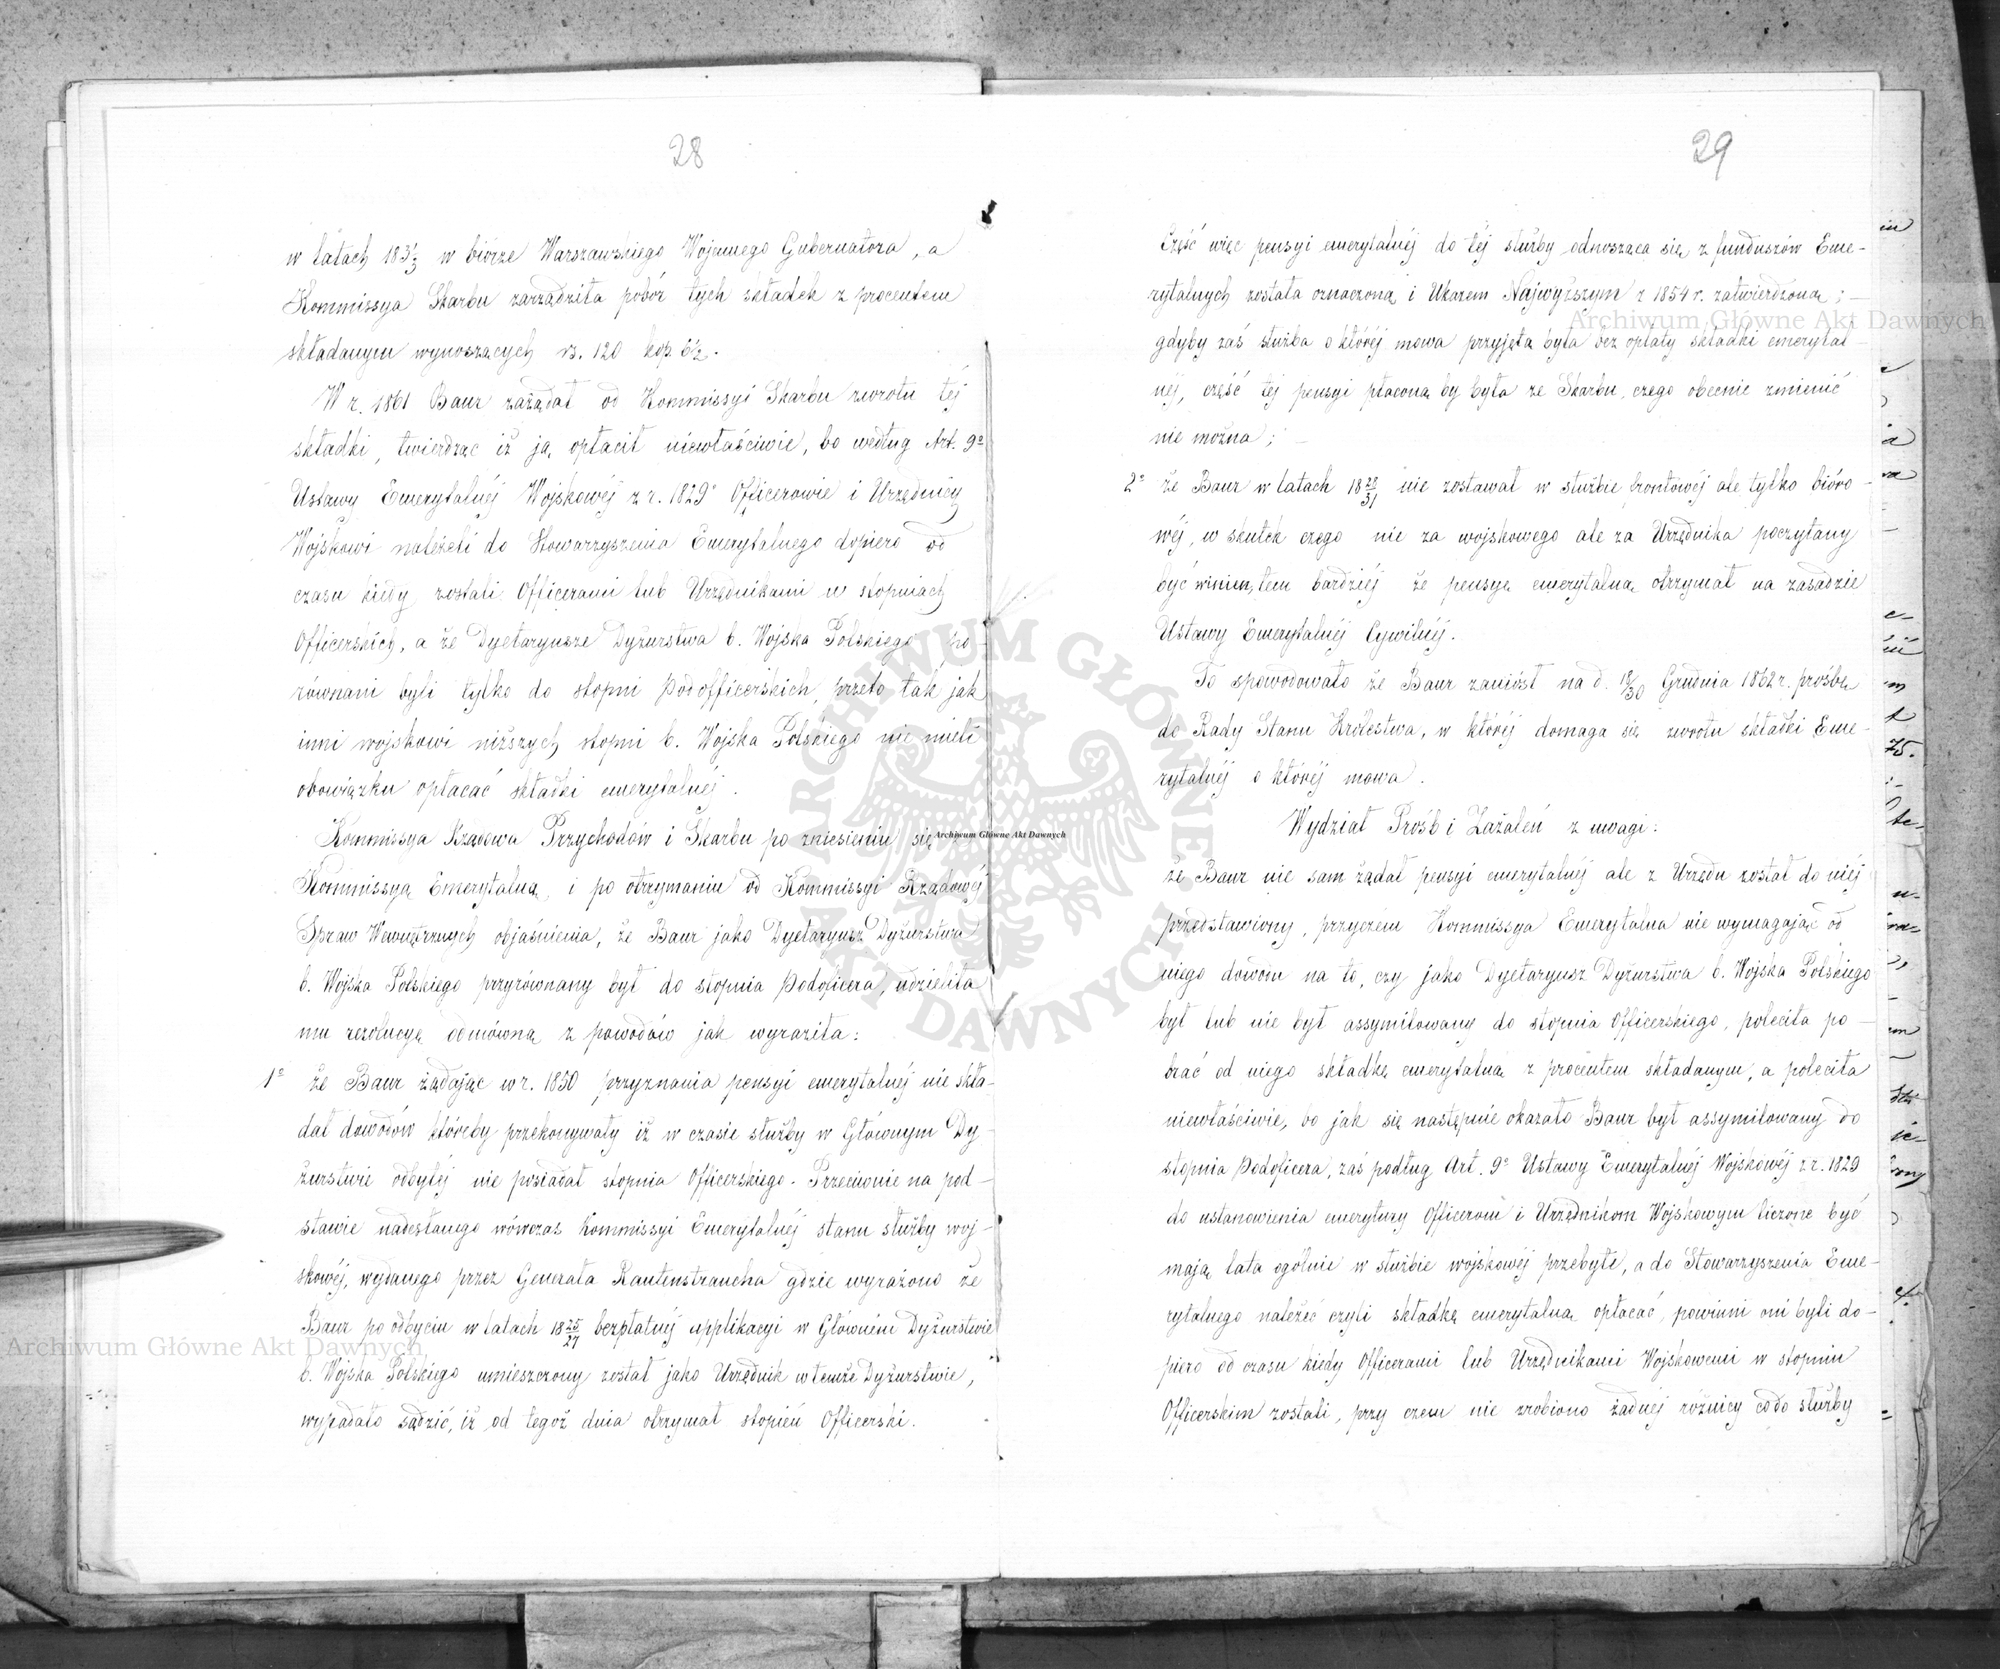 28
w latach 183 1/3 w biórze Warszawskiego Wojennego Gubernatora, a
Kommissya Skarbu zarządziła pobór tych składek z procentem
składanym wynoszących rs. 120 kop. 6½.
W r. 1861 Baur zażądał od Kommissyi Skarbu zwrotu téj
składki, twierdząc iż ją opłacił niewłaściwie, bo według Art. 9º
Ustawy Emerytalnéj Wojskowéj z r. 1829º Officerowie i Urzędnicy
Wojskowi należeli do Stowarzyszenia Emerytalnego dopiero od
czasu kiedy zostali Officerami lub Urzędnikami w stopniach
Officerskich, a że Dyetaryusze Dyżurstwa b. Wojska Polskiego po-
równani byli tylko do stopni Podofficerskich, przeto tak jak
inni wojskowi niższych stopni b. Wojska Polskiego nie mieli
obowiązku opłacać składki emerytalnéj.
Kommissya Rządowa Przychodów i Skarbu po zniesieniu się z
Kommissyą Emerytalną, i po otrzymaniu od Kommissyi Rządowéj
Spraw Wewnętrznych objaśnienia, że Baur jako Dyetaryusz Dyżurstwa
b. Wojska Polskiego przyrównany był do stopnia Podoficera, udzieliła
mu rezolucyę odmówną z powodów jak wyraziła:
1º że Baur żądając w r. 1850 przyznania pensyi emerytalnéj nie skła-
dał dowodów któreby przekonywały iż w czasie służby w Głównym Dy-
żurstwie odbytéj nie posiadał stopnia Officerskiego. Przeciwnie na pod-
stawie nadesłanego wówczas Kommissyi Emerytalnéj stanu służby woj-
skowéj, wydanego przez Generała Rautenstraucha gdzie wyrażono że
Baur po odbyciu w latach 18 25/27 bezpłatnéj applikacyi w Głównem Dyżurstwie
b. Wojska Polskiego umieszczony został jako Urzędnik w temże Dyżurstwie,
wypadało sądzić, iż od tegoż dnia otrzymał stopień Officerski.
29
Część więc pensyi emerytalnéj do téj służby odnosząca się z funduszów Eme-
rytalnych została oznaczoną i Ukazem Najwyższym z 1854 r. zatwierdzoną; —
gdyby zaś służba o któréj mowa przyjęta była bez opłaty składki emerytal-
néj, część téj pensyi płaconą by była ze Skarbu, czego obecnie zmienić
nie można; —
2º że Baur w latach 18 28/31 nie zostawał w służbie frontowéj ale tylko bióro-
wéj, w skutek czego nie za wojskowego ale za Urzędnika poczytany
być winien, tem bardziéj że pensyę emerytalną otrzymał na zasadzie
Ustawy Emerytalnéj Cywilnéj.
To spowodowało że Baur zaniósł na d. 18/30 Grudnia 1862 r. prośbę
do Rady Stanu Królestwa, w któréj domaga się zwrotu składki Eme-
rytalnéj o któréj mowa.
Wydział Próśb i Zażaleń z uwagi:
że Baur nie sam żądał pensyi emerytalnéj ale z Urzędu został do niéj
przedstawiony, przyczem Kommissya Emerytalna nie wymagając od
niego dowodu na to, czy jako Dyetaryusz Dyżurstwa b. Wojska Polskiego
był lub nie był assymilowany do stopnia Officerskiego, poleciła po-
brać od niego składkę emerytalną z procentem składanym, a poleciła
niewłaściwie, bo jak się następnie okazało Baur był assymilowany do
stopnia Podoficera, zaś podług Art. 9º Ustawy Emerytalnéj Wojskowéj z r. 1829
do ustanowienia emerytury Officerom i Urzędnikom Wojskowym liczone być
mają lata ogólnie w służbie wojskowéj przebyte, a do Stowarzyszenia Eme-
rytalnego należéć czyli składkę emerytalną opłacać, powinni oni byli do-
piero od czasu kiedy Officerami lub Urzędnikami Wojskowemi w stopniu
Officerskim zostali, przy czem nie zrobiono żadnéj różnicy co do służby
Archiwum Główne Akt Dawnych
Archiwum Główne Akt Dawnych
Archiwum Główne Akt Dawnych
ARCHIWUM GŁÓWNE AKT DAWNYCH